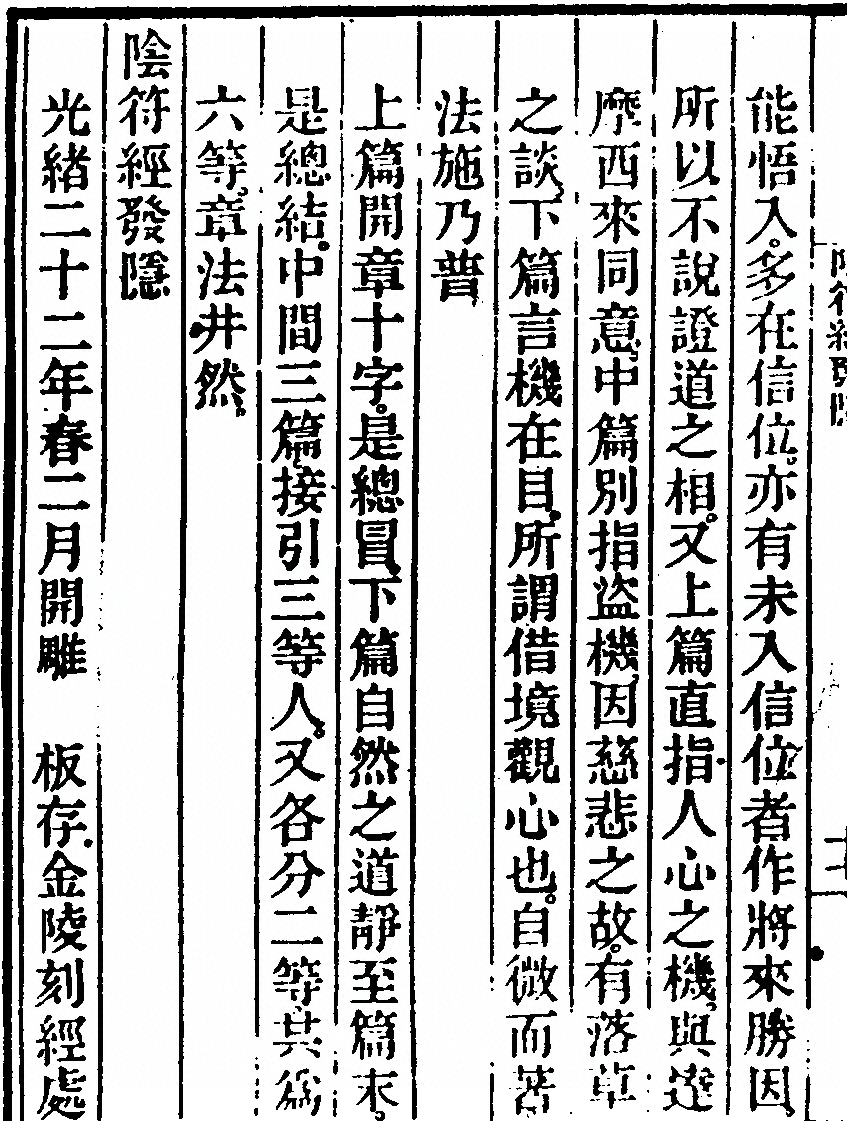 陰符經發隱
能悟入。多在信位。亦有未入信位者作將來勝因。
所以不說證道之相。又上篇直指人心之機。與達
摩西來同意。中篇別指盜機。因慈悲之故。有落草
之談。下篇言機在目。所謂借境觀心也。自微而著
法施乃普
上篇開章十字。是總冒。下篇自然之道靜至篇末。
是總結。中間三篇。接引三等人。又各分二等。共為
六等。章法井然。
陰符經發隱
光緒二十二年春二月開雕 板存金陵刻經處